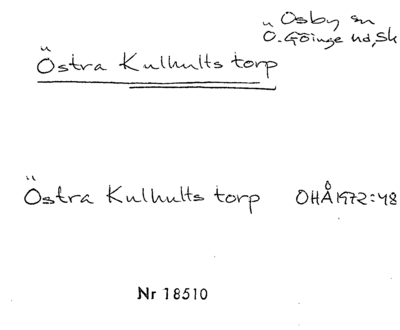 Osby sn
Ö. Göinge hd, Sk
Östra Kulhults torp
Östra Kulhults torp OHÅ 1972:48
Nr 18510